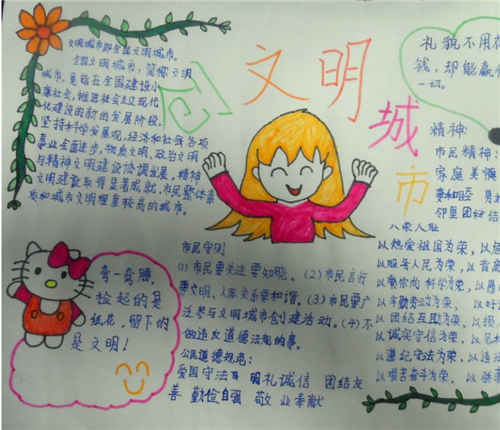 创文明城市
文明城市即全国文明城市。
全国文明城市,简称文明
城市,是指在全国建设小
康社会,推进社会主义现代
化建设的新的发展阶段,
坚持科学发展观,经济和社会各项
事业全面进步,物质文明,政治文明
与精神文明建设协调发展,精神
文明建设取得显著成就,市民整体素
质和城市文明程度较高的城市。
礼貌不用花
钱,却能赢
一切。
精神:
市民精神
家庭美德
妻和睦
邻里团结
八荣八耻
以热爱祖国为荣,以危
以服务人民为荣,以背
以崇尚科学为荣,以愚
以辛勤劳动为荣,以好
以团结互助为荣,以损
以诚实守信为荣,以见
以遵纪守法为荣,以违
以艰苦奋斗为荣,以骄
弯一弯腰,
捡起的是
纸花,留下的
是文明!
市民守则
(1)市民要关注要知晓。(2)市民言行
要文明,人际关系要和谐。(3)市民要广
泛参与文明城市创建活动。(4)不
做违反道德法规的事。
公民道德规范:
爱国守法 明礼诚信 团结友
善 勤俭自强 敬业奉献